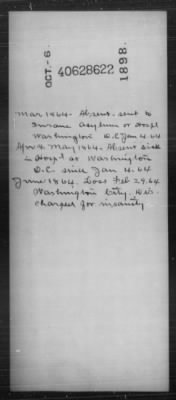 OCT. - 6.
40628622
1898.
Mar 1864 - Absent - sent to
Insane Asylum or Hospl
Washington D.C. Jan 4. 64
Apr & May 1864 - Absent sick
in Hospl at Washington
D.C. since Jan 4. 64
June 1864. Loss Feb 29. 64
Washington City. Dis-
charged for insanity